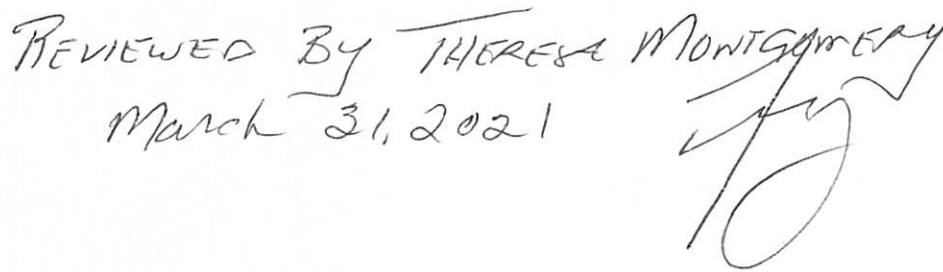 REVIEWED BY THERESA MONTGOMERY
March 31, 2021